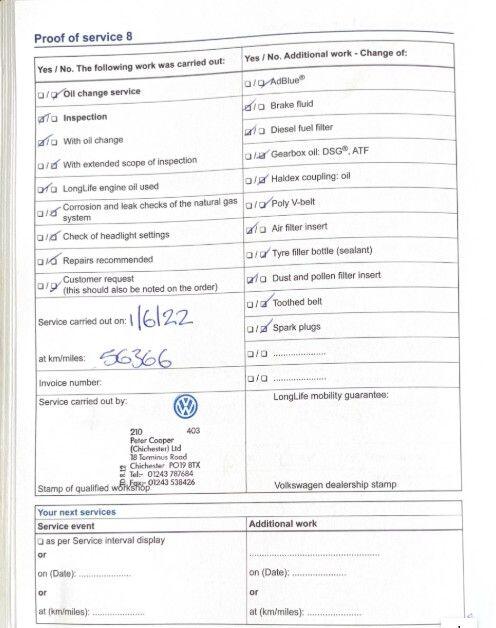 Proof of service 8
Yes / No. The following work was carried out:
☐/☑ Oil change service
☑/☐ Inspection
☑/☐ With oil change
☐/☑ With extended scope of inspection
☑/☐ LongLife engine oil used
☐/☑ Corrosion and leak checks of the natural gas
system
☐/☑ Check of headlight settings
☐/☑ Repairs recommended
☐/☑ Customer request
(this should also be noted on the order)
Service carried out on: 1/6/22
at km/miles: 56366
Invoice number:
Service carried out by:
210 403
Peter Cooper
(Chichester) Ltd
18 Terminus Road
Chichester PO19 8TX
Tel:- 01243 787684
Fax:- 01243 538426
Stamp of qualified workshop
Yes / No. Additional work - Change of:
☐/☑ AdBlue®
☑/☐ Brake fluid
☑/☐ Diesel fuel filter
☐/☑ Gearbox oil: DSG®, ATF
☐/☑ Haldex coupling: oil
☐/☑ Poly V-belt
☑/☐ Air filter insert
☐/☑ Tyre filler bottle (sealant)
☑/☐ Dust and pollen filter insert
☐/☑ Toothed belt
☐/☑ Spark plugs
☐/☐ ....................
☐/☐ ....................
LongLife mobility guarantee:
Volkswagen dealership stamp
Your next services
Service event
☐ as per Service interval display
or
on (Date): ....................
or
at (km/miles): ....................
Additional work
..................................................
on (Date): ....................
or
at (km/miles): ....................